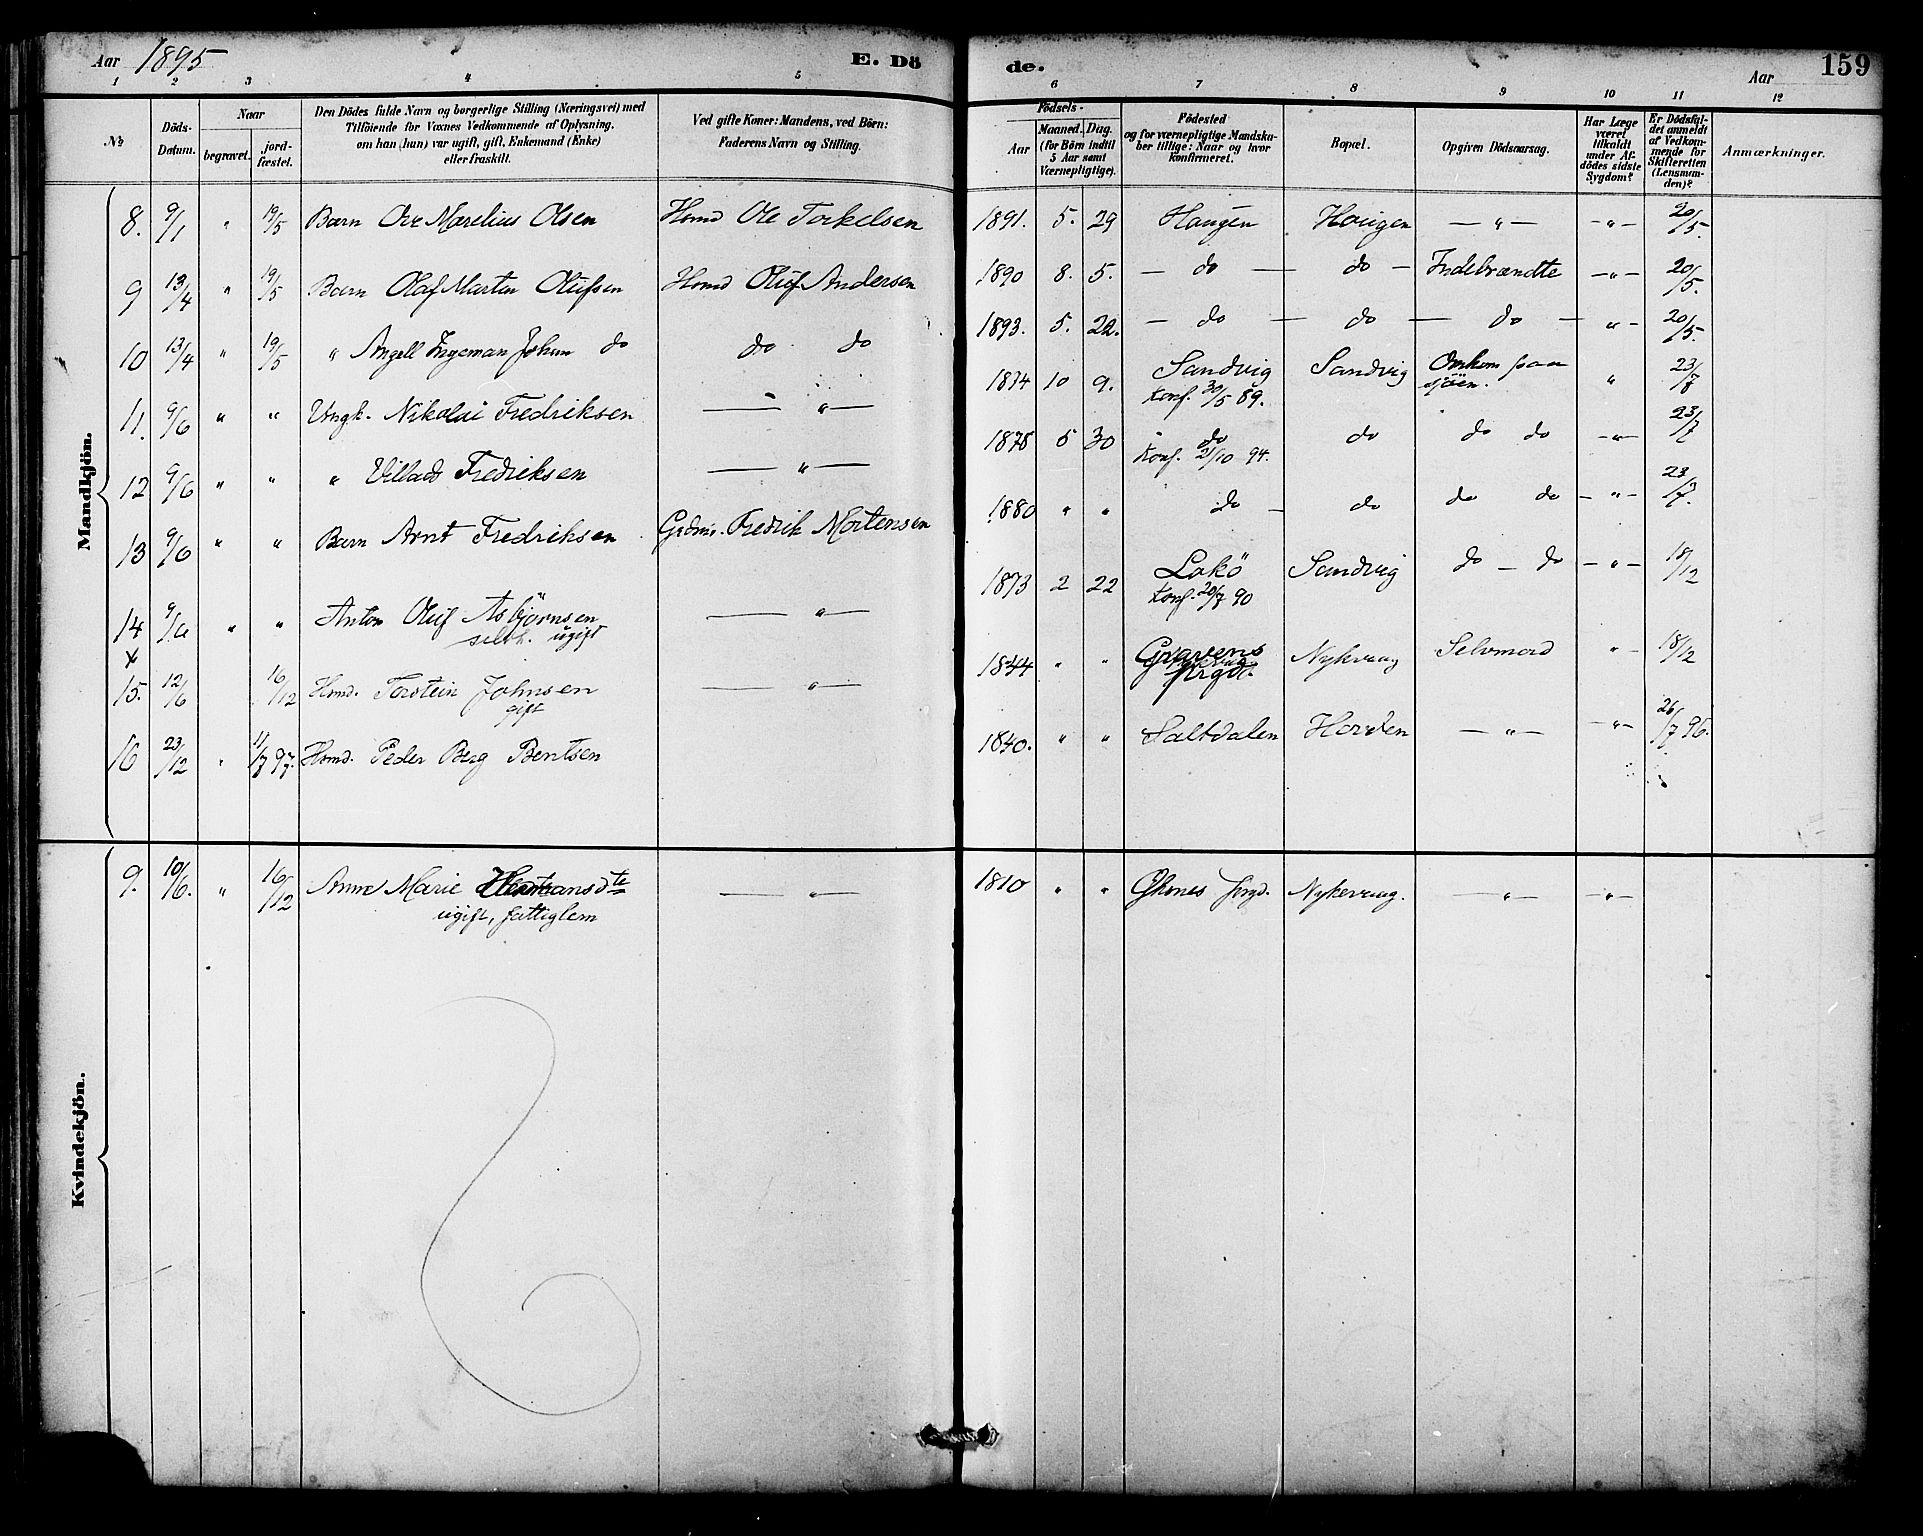 Aar 1895 E. Döde. Aar 159
1 2 3 4 5 6 7 8 9 10 11 12
No.
Döds-Datum.
Naar
begravet.
jord-fæstet.
Den Dödes fulde Navn og borgerlige Stilling (Næringsvei) med
Tilföiende for Voxnes Vedkommende af Oplysning.
om han (hun) var ugift, gift, Enkemand (Enke)
eller fraskilt.
Ved gifte Koner: Mandens, ved Börn:
Faderens Navn og Stilling.
Födsels-
Aar
Maaned. Dag.
(for Börn indtil
5 Aar samt
Værnepligtige).
Födested
og for værnepligtige Mandska-
ber tillige: Naar og hvor
konfirmeret.
Bopæl.
Opgiven Dödsaarsag.
Har Læge
været
tilkaldt
under Af-
dödes sidste
Sygdom?
Er Dödsfal-
det anmeldt
af Vedkom-
mende for
Skifteretten
(Lensman-
den)?
Anmærkninger.
Mandkjön.
8. 9/1 " 19/5 Barn Ove Marelius Olsen Hmd Ole Torkelsen 1891. 5. 29 Haugen Haugen — " — — " — 20/5.
9 13/4 " 19/5 Barn Olaf Martin Olufsen Hmd Oluf Andersen 1890 8. 5. — do — do — Indebrændte — " — 20/5.
10 13/4 " 19/5 " Angell Ingeman Johan do do do 1893. 5. 22. — do — do — do — " — 20/5.
11. 9/6 " " Ungk. Nikolai Fredriksen — " — 1874 10 9. Sandvig Sandvig Omkom paa " 23/7
Konf. 30/5 89. sjöen.
12 9/6 " " " Villads Fredriksen — " — 1878 5 30 do do do do — " — 23/7
Konf. 21/10 94.
13 9/6 " " Barn Arnt Fredriksen Grdmd. Fredrik Mortensen 1880 " " do — do do do — " — 23/7.
14 9/6 " " Anton Oluf Asbjörnsen — " — 1873 2 22 Lokö Sandvig do — do — " — 18/12
x ugift Konf. 20/7 90
15. 12/6 16/12 Hmd. Torstein Johnsen — " — 1844 " " Gravens Nykvaag Selvmord " — 18/12
gift Prgd.
16 23/12 " 11/7 97. Hmd. Peder Berg Bentsen 1840. " " Saltdalen — " — — " — 26/7 96.
Kvindekjön.
9. 10/6. " 16/12 Anne Marie — " — 1810 " " Prgd. Nykvaag. — " — — " —
ugift, fattiglem